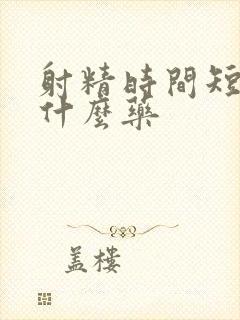 射精時間短
什麼藥
蓋樓